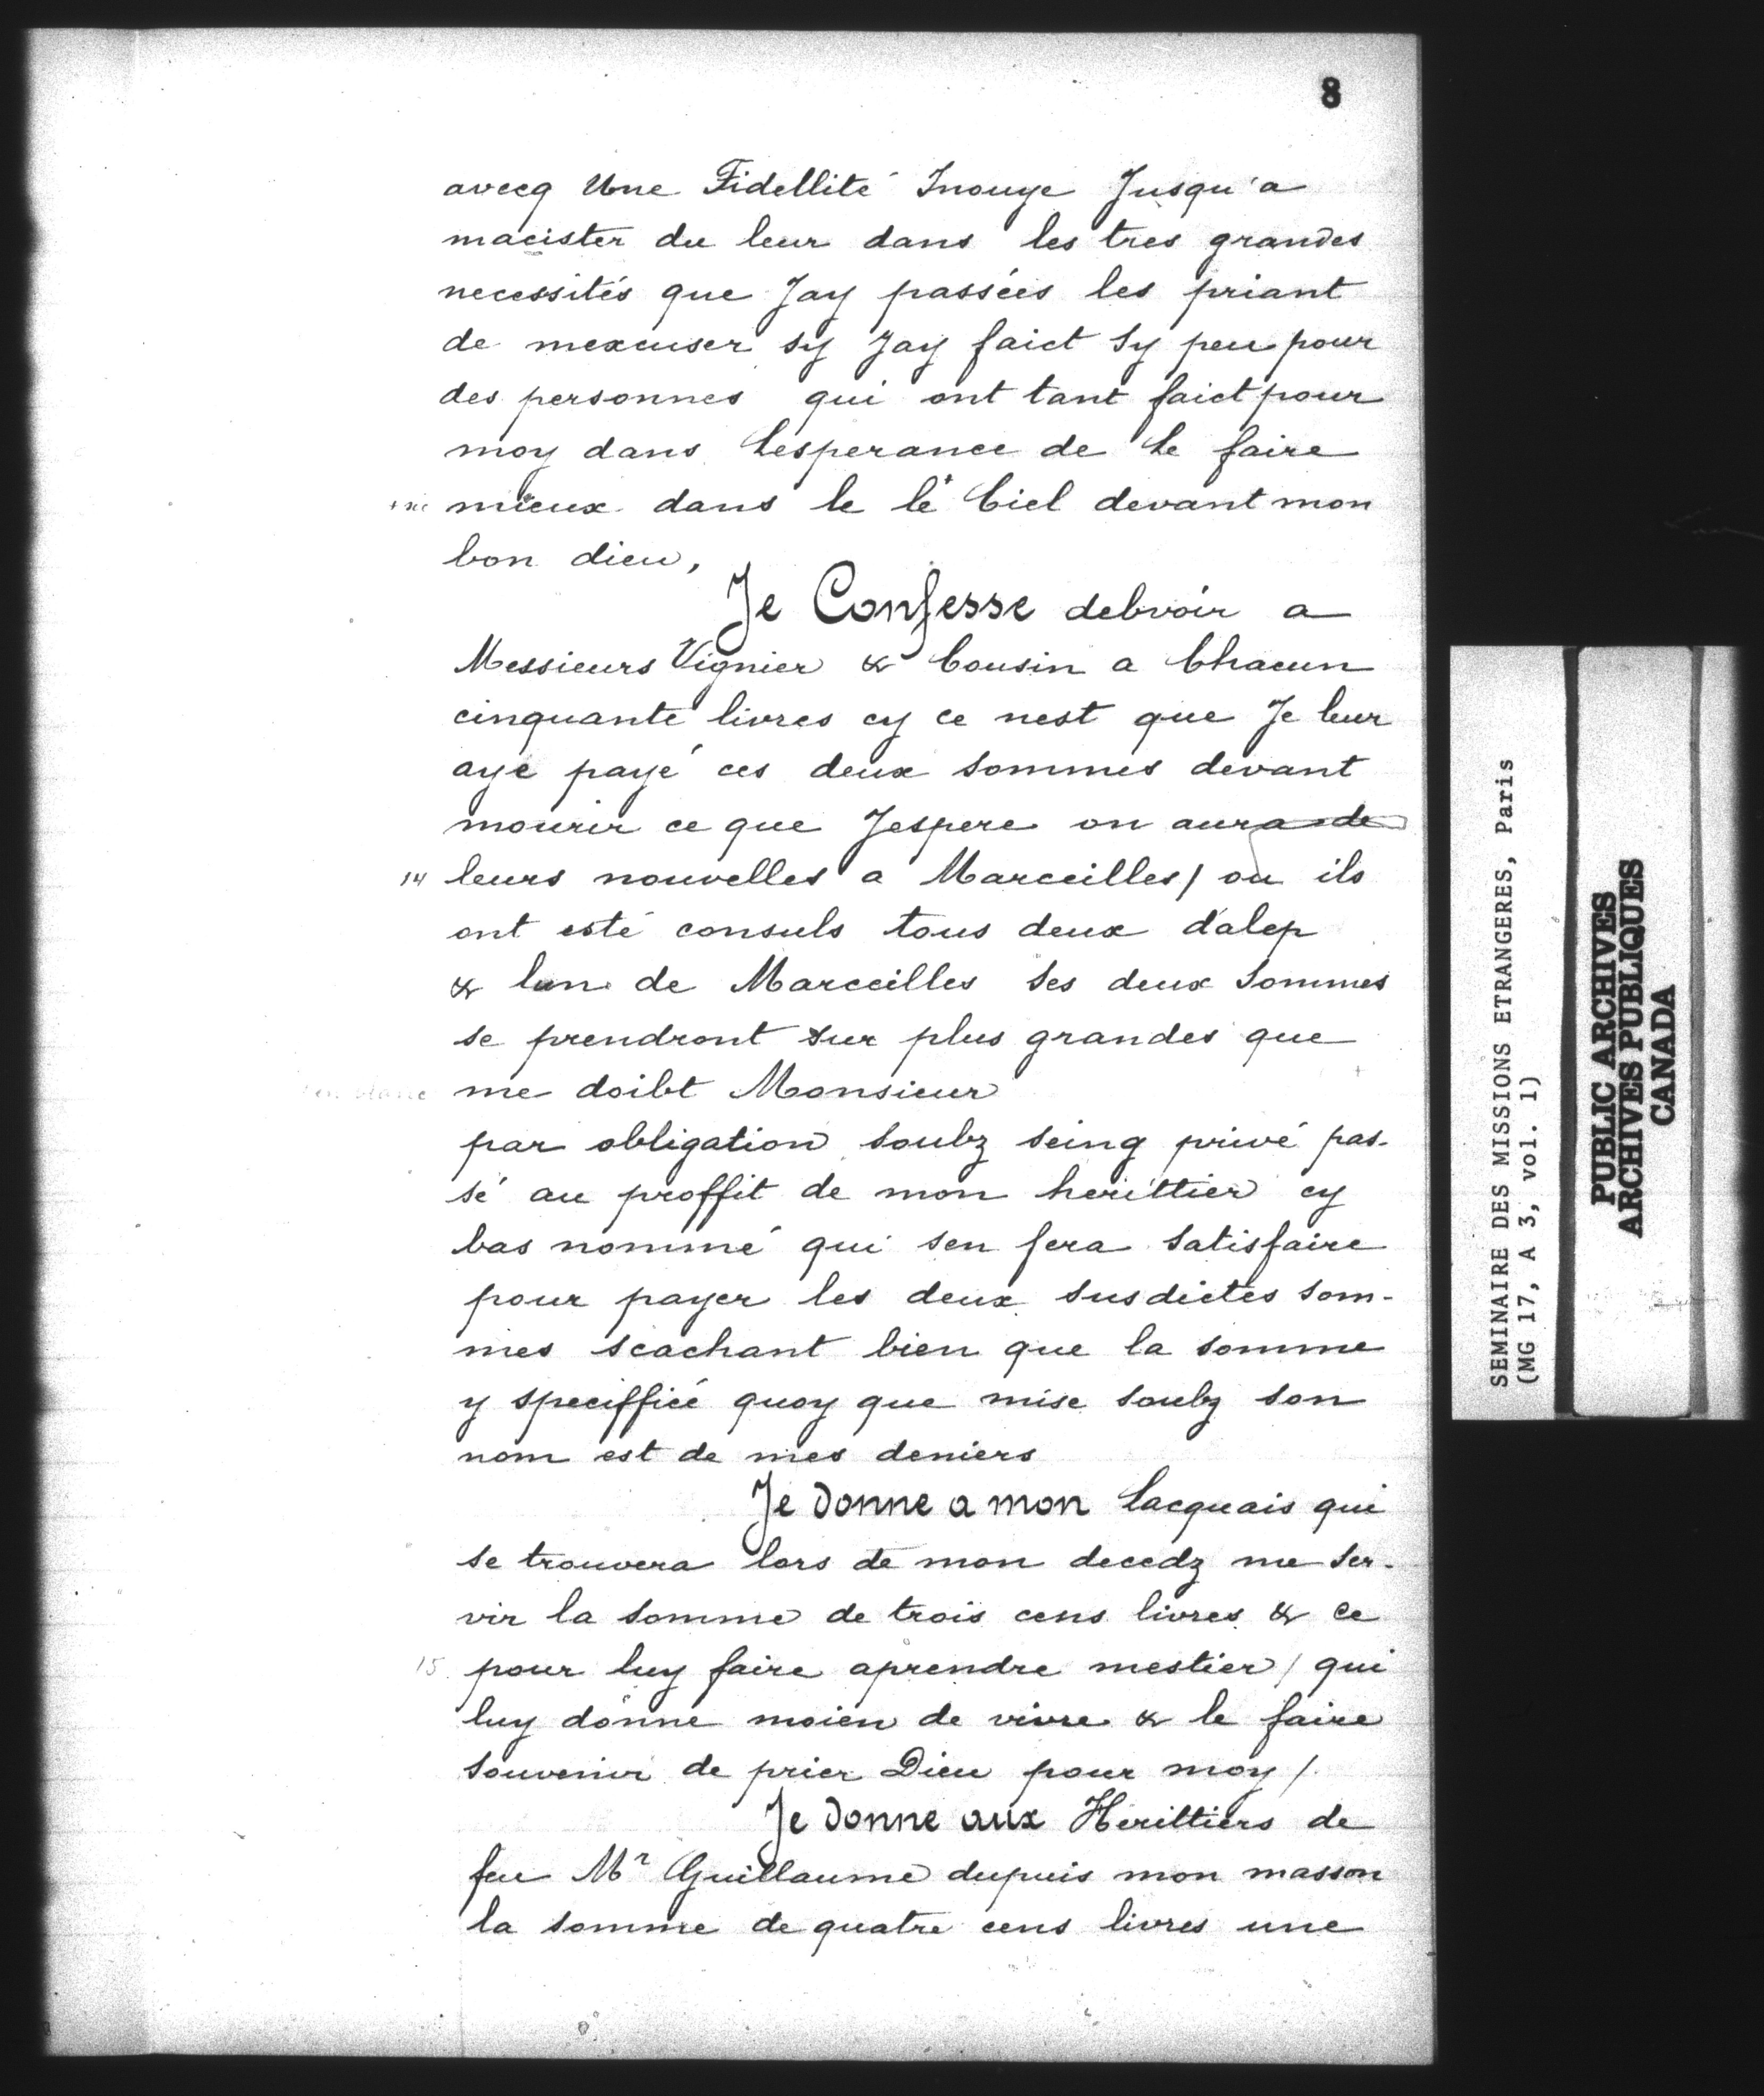 8
avecq Une Fidellité Inouye Jusqu'a
macister du leur dans les tres grandes
necessités que Jay passées les priant
de mexcuser sy Jay faict sy peu pour
des personnes qui ont tant faict pour
moy dans Lesperance de Le faire
mieux dans le lé+ Ciel devant mon
bon dieu,
Je Confesse debvoir a
Messieurs Vignier & Cousin a Chacun
cinquante livres cy ce nest que Je leur
aye payé ces deux sommes devant
mourir ce que Jespere on aura de
14 leurs nouvelles a Marceilles / ou ils
ont esté consuls tous deux d'alep
& lun de Marceilles ses deux sommes
se prendront sur plus grandes que
en blanc me doibt Monsieur
par obligation soubz seing privé pas-
sé au proffit de mon herittier cy
bas nommé qui sen fera satisfaire
pour payer les deux susdictes som-
mes scachant bien que la somme
y speciffiée quoy que mise soubz son
nom est de mes deniers
Je donne a mon lacquais qui
se trouvera lors de mon decedz me ser-
vir la somme de trois cens livres & ce
15 pour luy faire aprendre mestier / qui
luy donne moien de vivre & le faire
souvenir de prier Dieu pour moy /.
Je donne aux Herittiers de
feu Mr Guillaume dupuis mon masson
la somme de quatre cens livres une
SEMINAIRE DES MISSIONS ETRANGERES, Paris
(MG 17, A 3, vol. 1)
PUBLIC ARCHIVES
ARCHIVES PUBLIQUES
CANADA